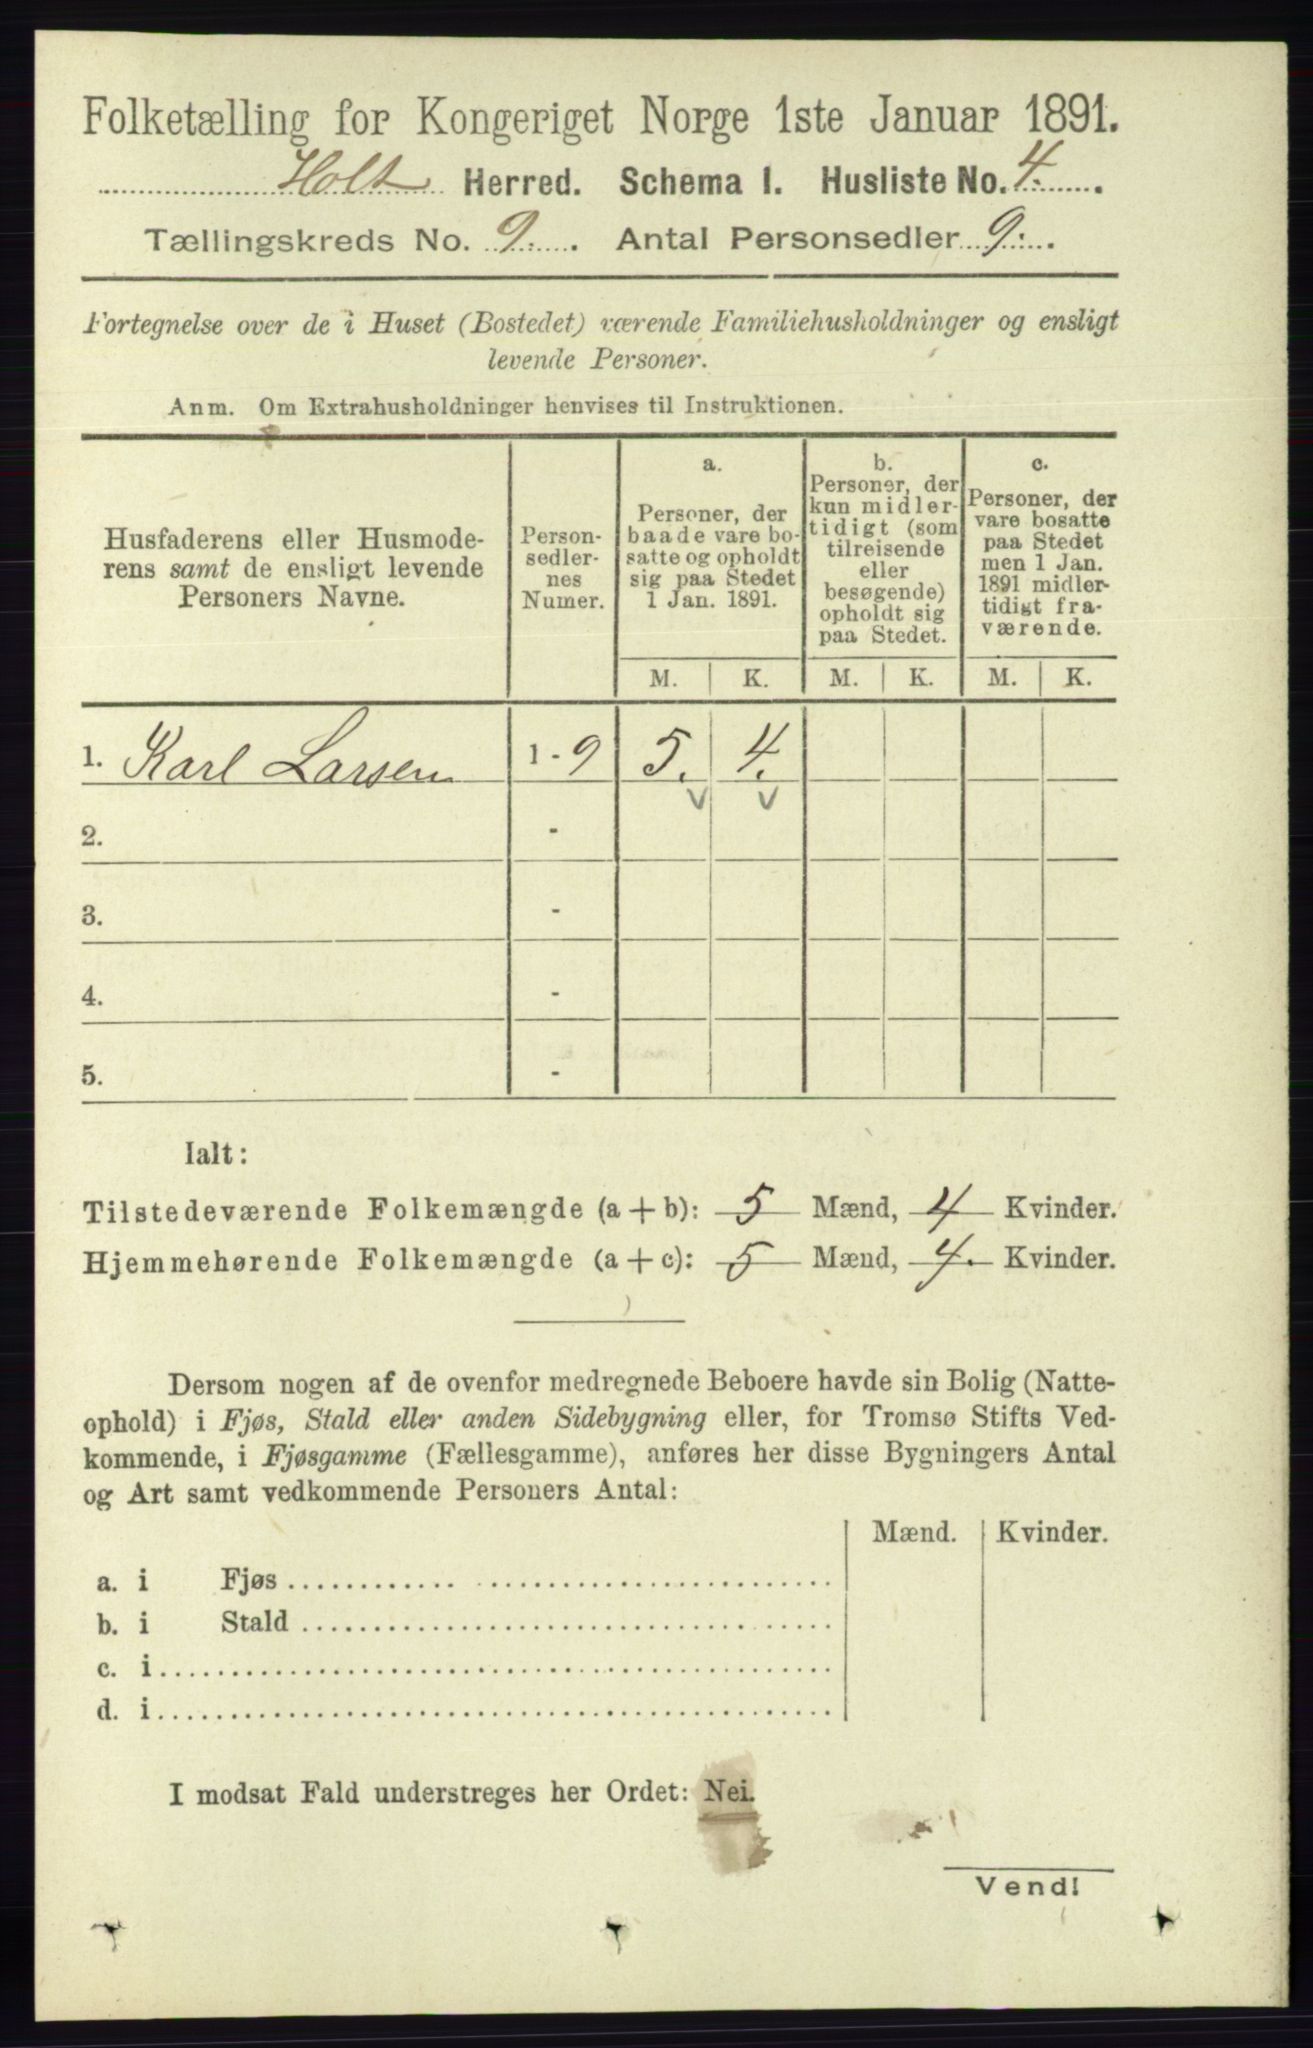 Folketælling for Kongeriget Norge 1ste Januar 1891.
Holt Herred. Schema I. Husliste No. 4.
Tællingskreds No. 9. Antal Personsedler 9.
Fortegnelse over de i Huset (Bostedet) værende Familiehusholdninger og ensligt
levende Personer.
Anm. Om Extrahusholdninger henvises til Instruktionen.
Husfaderens eller Husmode-
rens samt de ensligt levende
Personers Navne.
Person-
sedler-
nes
Numer.
a.
Personer, der
baade vare bo-
satte og opholdt
sig paa Stedet
1 Jan. 1891.
b.
Personer, der
kun midler-
tidigt (som
tilreisende
eller
besøgende)
opholdt sig
paa Stedet.
c.
Personer, der
vare bosatte
paa Stedet
men 1 Jan.
1891 midler-
tidigt fra-
værende.
M. K. M. K. M. K.
1. Karl Larsen 1-9 5. 4.
2. -
3. -
4. -
5. -
Ialt:
Tilstedeværende Folkemængde (a + b): 5 Mænd, 4 Kvinder.
Hjemmehørende Folkemængde (a + c): 5 Mænd, 4. Kvinder.
Dersom nogen af de ovenfor medregnede Beboere havde sin Bolig (Natte-
ophold) i Fjøs, Stald eller anden Sidebygning eller, for Tromsø Stifts Ved-
kommende, i Fjøsgamme (Fællesgamme), anføres her disse Bygningers Antal
og Art samt vedkommende Personers Antal:
Mænd. Kvinder.
a. i Fjøs
b. i Stald
c. i
d. i
I modsat Fald understreges her Ordet: Nei.
Vend!